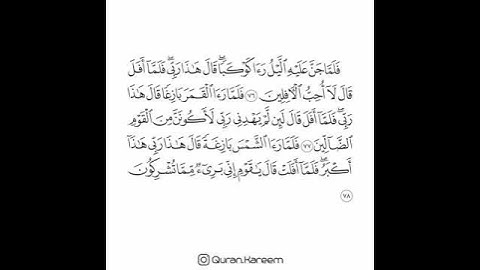 فَلَمَّا جَنَّ عَلَيْهِ ٱلَّيْلُ رَءَا كَوْكَبًاۖ قَالَ هَٰذَا رَبِّيۖ فَلَمَّآ أَفَلَ
قَالَ لَآ أُحِبُّ ٱلْأٓفِلِينَ ٧٦ فَلَمَّا رَءَا ٱلْقَمَرَ بَازِغًا قَالَ هَٰذَا
رَبِّيۖ فَلَمَّآ أَفَلَ قَالَ لَئِن لَّمْ يَهْدِنِي رَبِّي لَأَكُونَنَّ مِنَ ٱلْقَوْمِ
ٱلضَّآلِّينَ ٧٧ فَلَمَّا رَءَا ٱلشَّمْسَ بَازِغَةً قَالَ هَٰذَا رَبِّي هَٰذَآ
أَكْبَرُۖ فَلَمَّآ أَفَلَتْ قَالَ يَٰقَوْمِ إِنِّي بَرِيٓءٌ مِّمَّا تُشْرِكُونَ
٧٨
Quran.Kareem